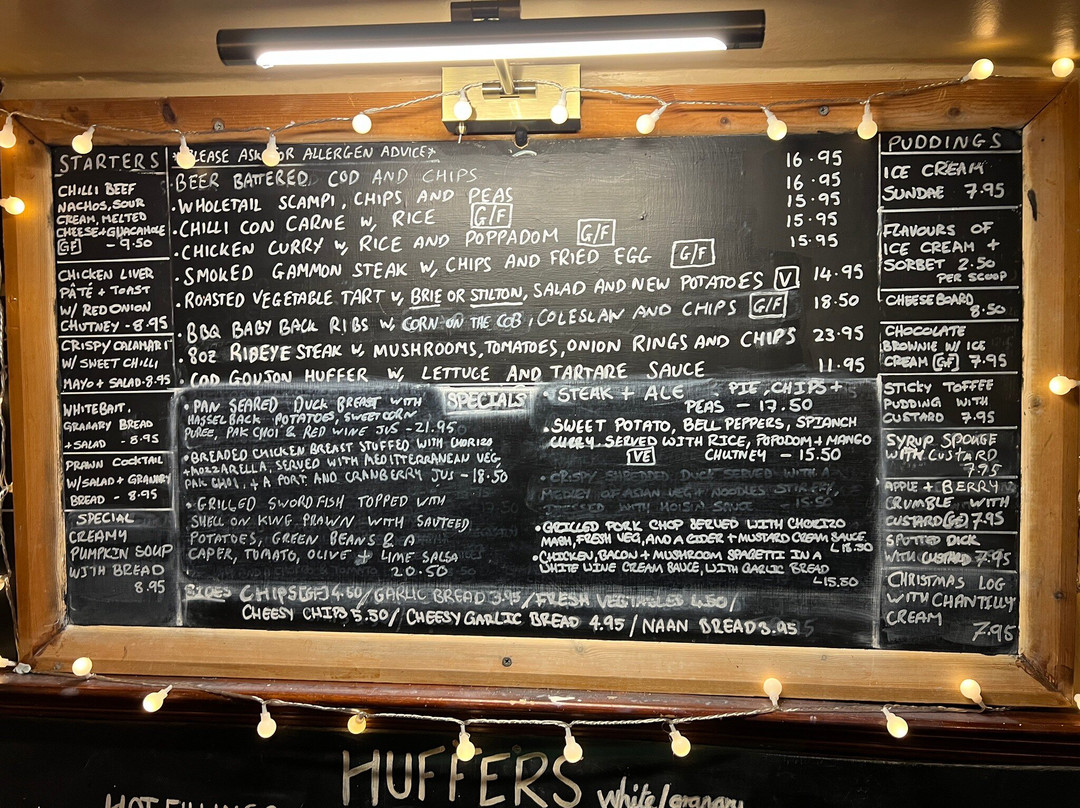 STARTERS
CHILLI BEEF
NACHOS, SOUR
CREAM, MELTED
CHEESE + GUACAMOLE
GF - 9.50
CHICKEN LIVER
PÂTÉ + TOAST
W/ RED ONION
CHUTNEY - 8.95
CRISPY CALAMARI
W/ SWEET CHILLI
MAYO + SALAD - 8.95
WHITEBAIT,
GRANARY BREAD
+ SALAD - 8.95
PRAWN COCKTAIL
W/ SALAD + GRANARY
BREAD - 8.95
SPECIAL
CREAMY
PUMPKIN SOUP
WITH BREAD
8.95
*PLEASE ASK FOR ALLERGEN ADVICE*
• BEER BATTERED COD AND CHIPS 16.95
• WHOLETAIL SCAMPI, CHIPS AND PEAS 16.95
• CHILLI CON CARNE W, RICE G/F 15.95
• CHICKEN CURRY W, RICE AND POPPADOM G/F 15.95
• SMOKED GAMMON STEAK W, CHIPS AND FRIED EGG G/F 15.95
• ROASTED VEGETABLE TART W, BRIE OR STILTON, SALAD AND NEW POTATOES V 14.95
• BBQ BABY BACK RIBS W, CORN ON THE COB, COLESLAW AND CHIPS G/F 18.50
• 8oz RIBEYE STEAK W, MUSHROOMS, TOMATOES, ONION RINGS AND CHIPS 23.95
• COD GOUJON HUFFER W, LETTUCE AND TARTARE SAUCE 11.95
SPECIALS
• PAN SEARED DUCK BREAST WITH
HASSELBACK POTATOES, SWEETCORN
PUREE, PAK CHOI & RED WINE JUS - 21.95
• BREADED CHICKEN BREAST STUFFED WITH CHORIZO
+ MOZZARELLA, SERVED WITH MEDITERRANEAN VEG,
PAK CHOI, + A PORT AND CRANBERRY JUS - 18.50
• GRILLED SWORDFISH TOPPED WITH
SHELL ON KING PRAWN WITH SAUTEED
POTATOES, GREEN BEANS & A
CAPER, TOMATO, OLIVE + LIME SALSA
20.50
• STEAK + ALE PIE, CHIPS +
PEAS - 17.50
• SWEET POTATO, BELL PEPPERS, SPIANCH
CURRY SERVED WITH RICE, POPODOM + MANGO
VE CHUTNEY - 15.50
• CRISPY SHREDDED DUCK SERVED WITH A
MEDLEY OF ASIAN VEG + NOODLES STIR FRY,
DRESSED WITH HOISIN SAUCE - 15.50
• GRILLED PORK CHOP SERVED WITH CHORIZO
MASH, FRESH VEG, AND A CIDER + MUSTARD CREAM SAUCE
18.50
• CHICKEN, BACON + MUSHROOM SPAGETTI IN A
WHITE WINE CREAM SAUCE, WITH GARLIC BREAD
15.50
SIDES CHIPS [GF] 4.50 / GARLIC BREAD 3.95 / FRESH VEGTABLES 4.50 /
CHEESY CHIPS 5.50 / CHEESY GARLIC BREAD 4.95 / NAAN BREAD 3.95
PUDDINGS
ICE CREAM
SUNDAE 7.95
FLAVOURS OF
ICE CREAM +
SORBET 2.50
PER SCOOP
CHEESEBOARD
8.50
CHOCOLATE
BROWNIE W/ ICE
CREAM GF 7.95
STICKY TOFFEE
PUDDING WITH
CUSTARD 7.95
SYRUP SPONGE
WITH CUSTARD
7.95
APPLE + BERRY
CRUMBLE WITH
CUSTARD GF 7.95
SPOTTED DICK
WITH CUSTARD 7.95
CHRISTMAS LOG
WITH CHANTILLY
CREAM
7.95
HUFFERS white/granary
HOT FILLINGS